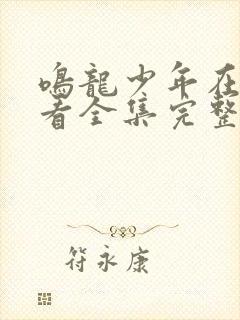 鸣龍少年在
看全集完整
符永康